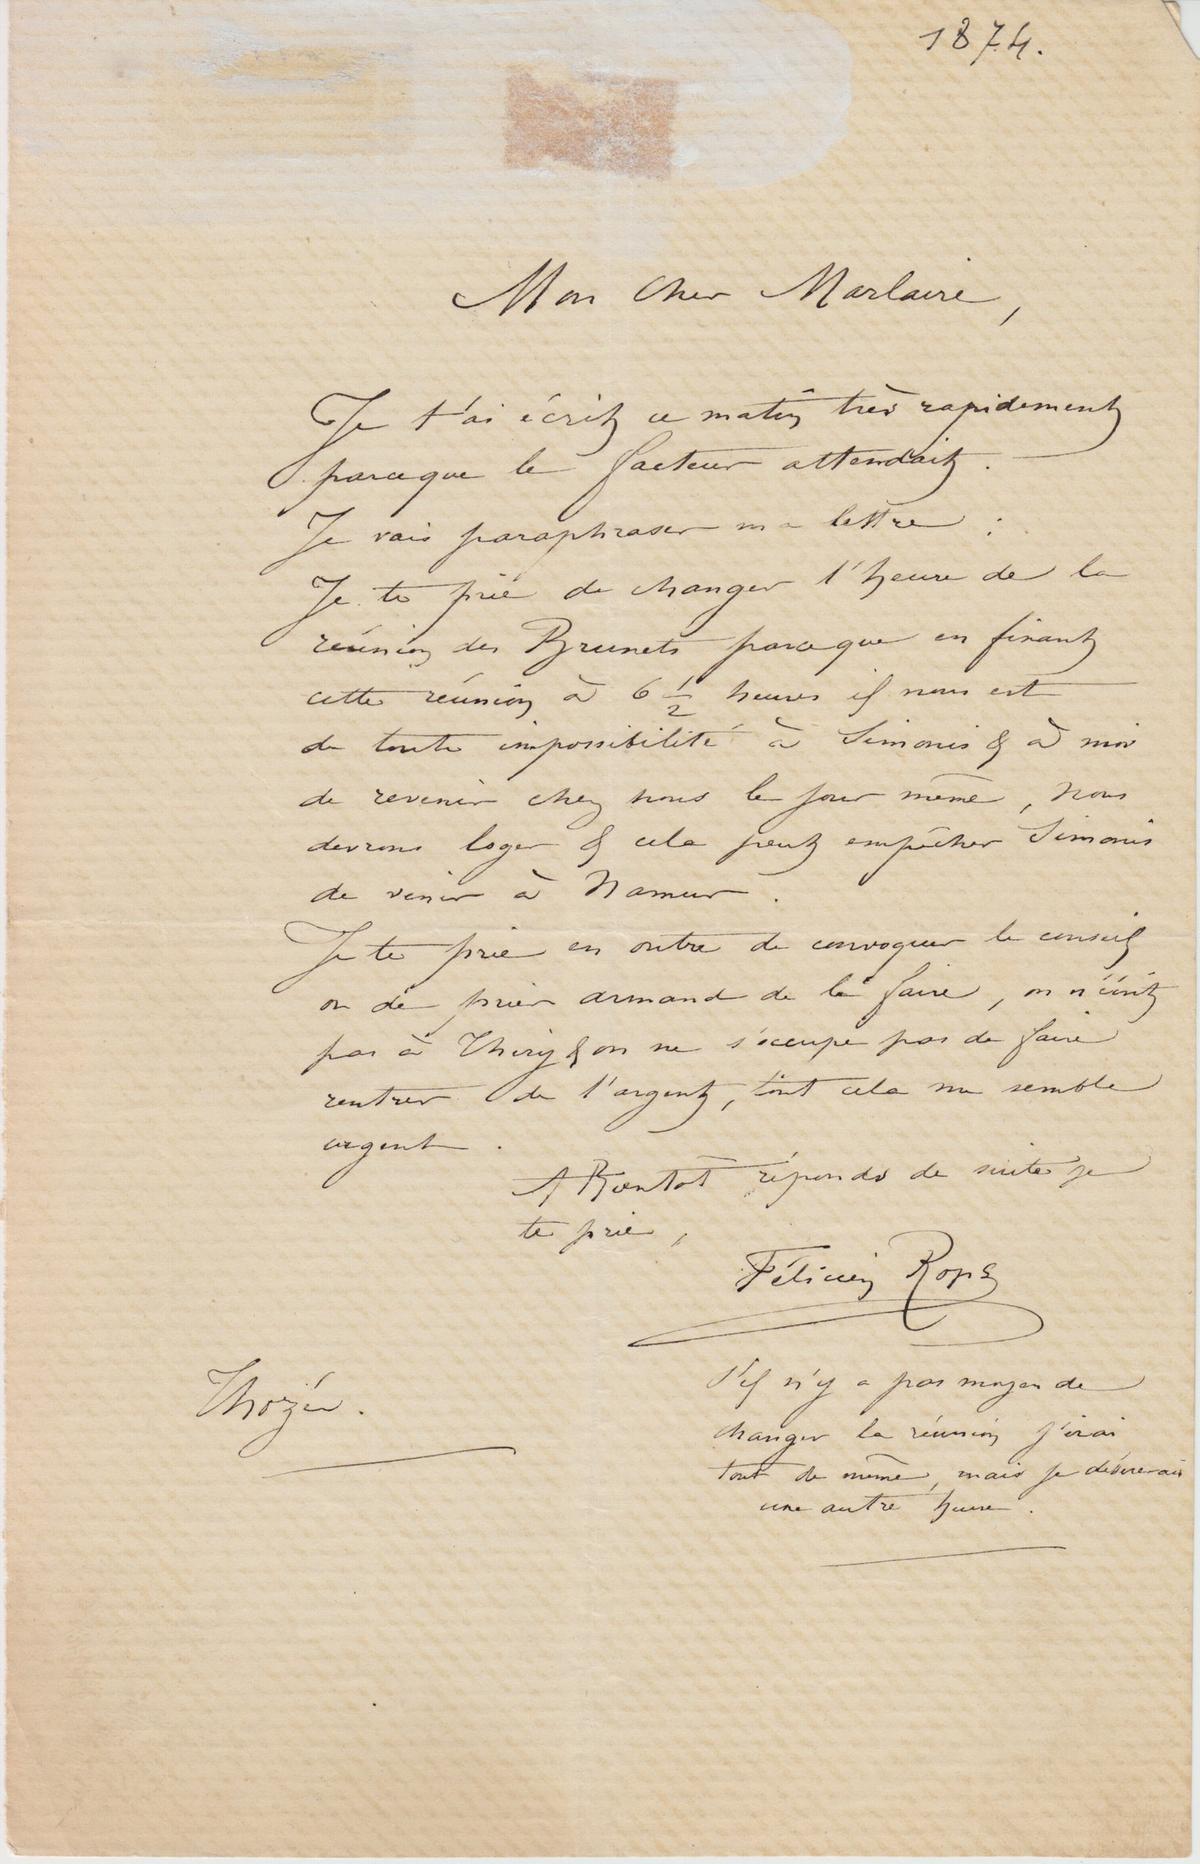 1874.
Mon Cher Marlaire,
Je t'ai écrit ce matin très rapidement
parceque le facteur attendait.
Je vais paraphraser ma lettre :
Je te prie de changer l'heure de la
réunion des Brunets parceque en finant
cette réunion à 6 1/2 heures il nous est
de toute impossibilité à Simonis & à moi
de revenir chez nous le jour même, nous
devrons loger & cela peut empêcher Simonis
de venir à Namur.
Je te prie en outre de convoquer le conseil
ou de prier armand de le faire, on n'écrit
pas à Thiry & on ne s'occupe pas de faire
rentrer de l'argent, tout cela me semble
urgent.
A Bientôt réponds de suite je
te prie,
Félicien Rops
Thozée.
S'il n'y a pas moyen de
changer la réunion j'irai
tout de même, mais je désirerais
une autre heure.